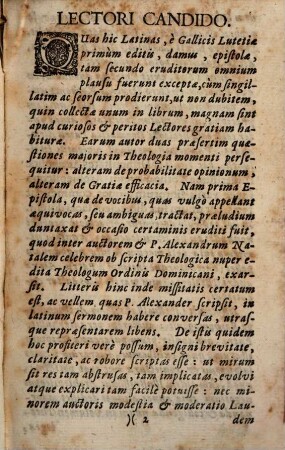 LECTORI CANDIDO.
QUas hic Latinas, è Gallicis Lutetiæ
primùm editis, damus, epistolæ,
tam secundo eruditorum omnium
plausu fuerunt exceptæ, cùm singil-
latim ac seorsum prodierunt, ut non dubitem,
quin collectæ unum in librum, magnam sint
apud curiosos & peritos Lectores gratiam ha-
bituræ. Earum autor duas præsertim quæ-
stiones majoris in Theologia momenti perse-
quitur: alteram de probabilitate opinionum,
alteram de Gratiæ efficacia. Nam prima E-
pistola, quæ de vocibus, quas vulgò appellant
æquivocas, seu ambiguas, tractat, præludium
duntaxat & occasio certaminis eruditi fuit,
quod inter auctorem & P. Alexandrum Na-
talem celebrem ob scripta Theologica nuper e-
dita Theologum Ordinis Dominicani, exar-
sit. Litteris hinc inde missitatis certatum
est, ac vellem, quas P. Alexander scripsit, in
latinum sermonem habere conversas, utras-
que repræsentarem libens. De istis quidem
hoc profiteri verè possum, insigni brevitate,
claritate, ac robore scriptas esse: ut mirum
sit res tam abstrusas, tam implicatas, evolvi
atque explicari tam facilè potuisse: nec mi-
norem auctoris modestia & moderatio Lau-
)( 2 dem